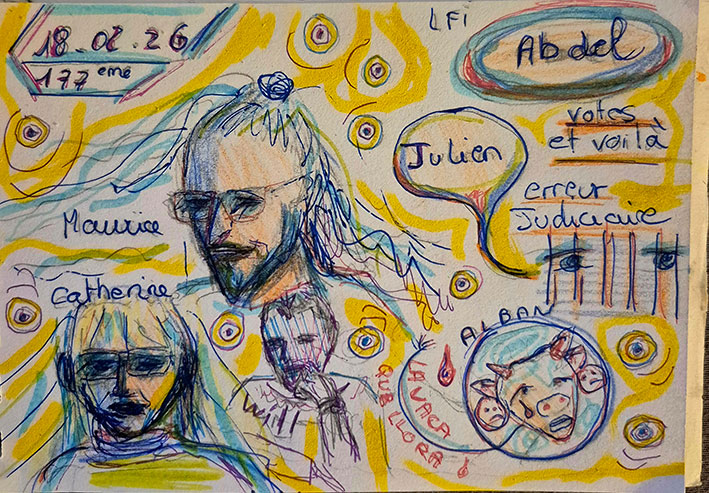 18.02.26
177eme
LFI
Abdel
votes
et voilà
Julien
erreur
Judiciaire
Maurice
Catherine
will
ALBAN
LA VACA
QUE LLORA